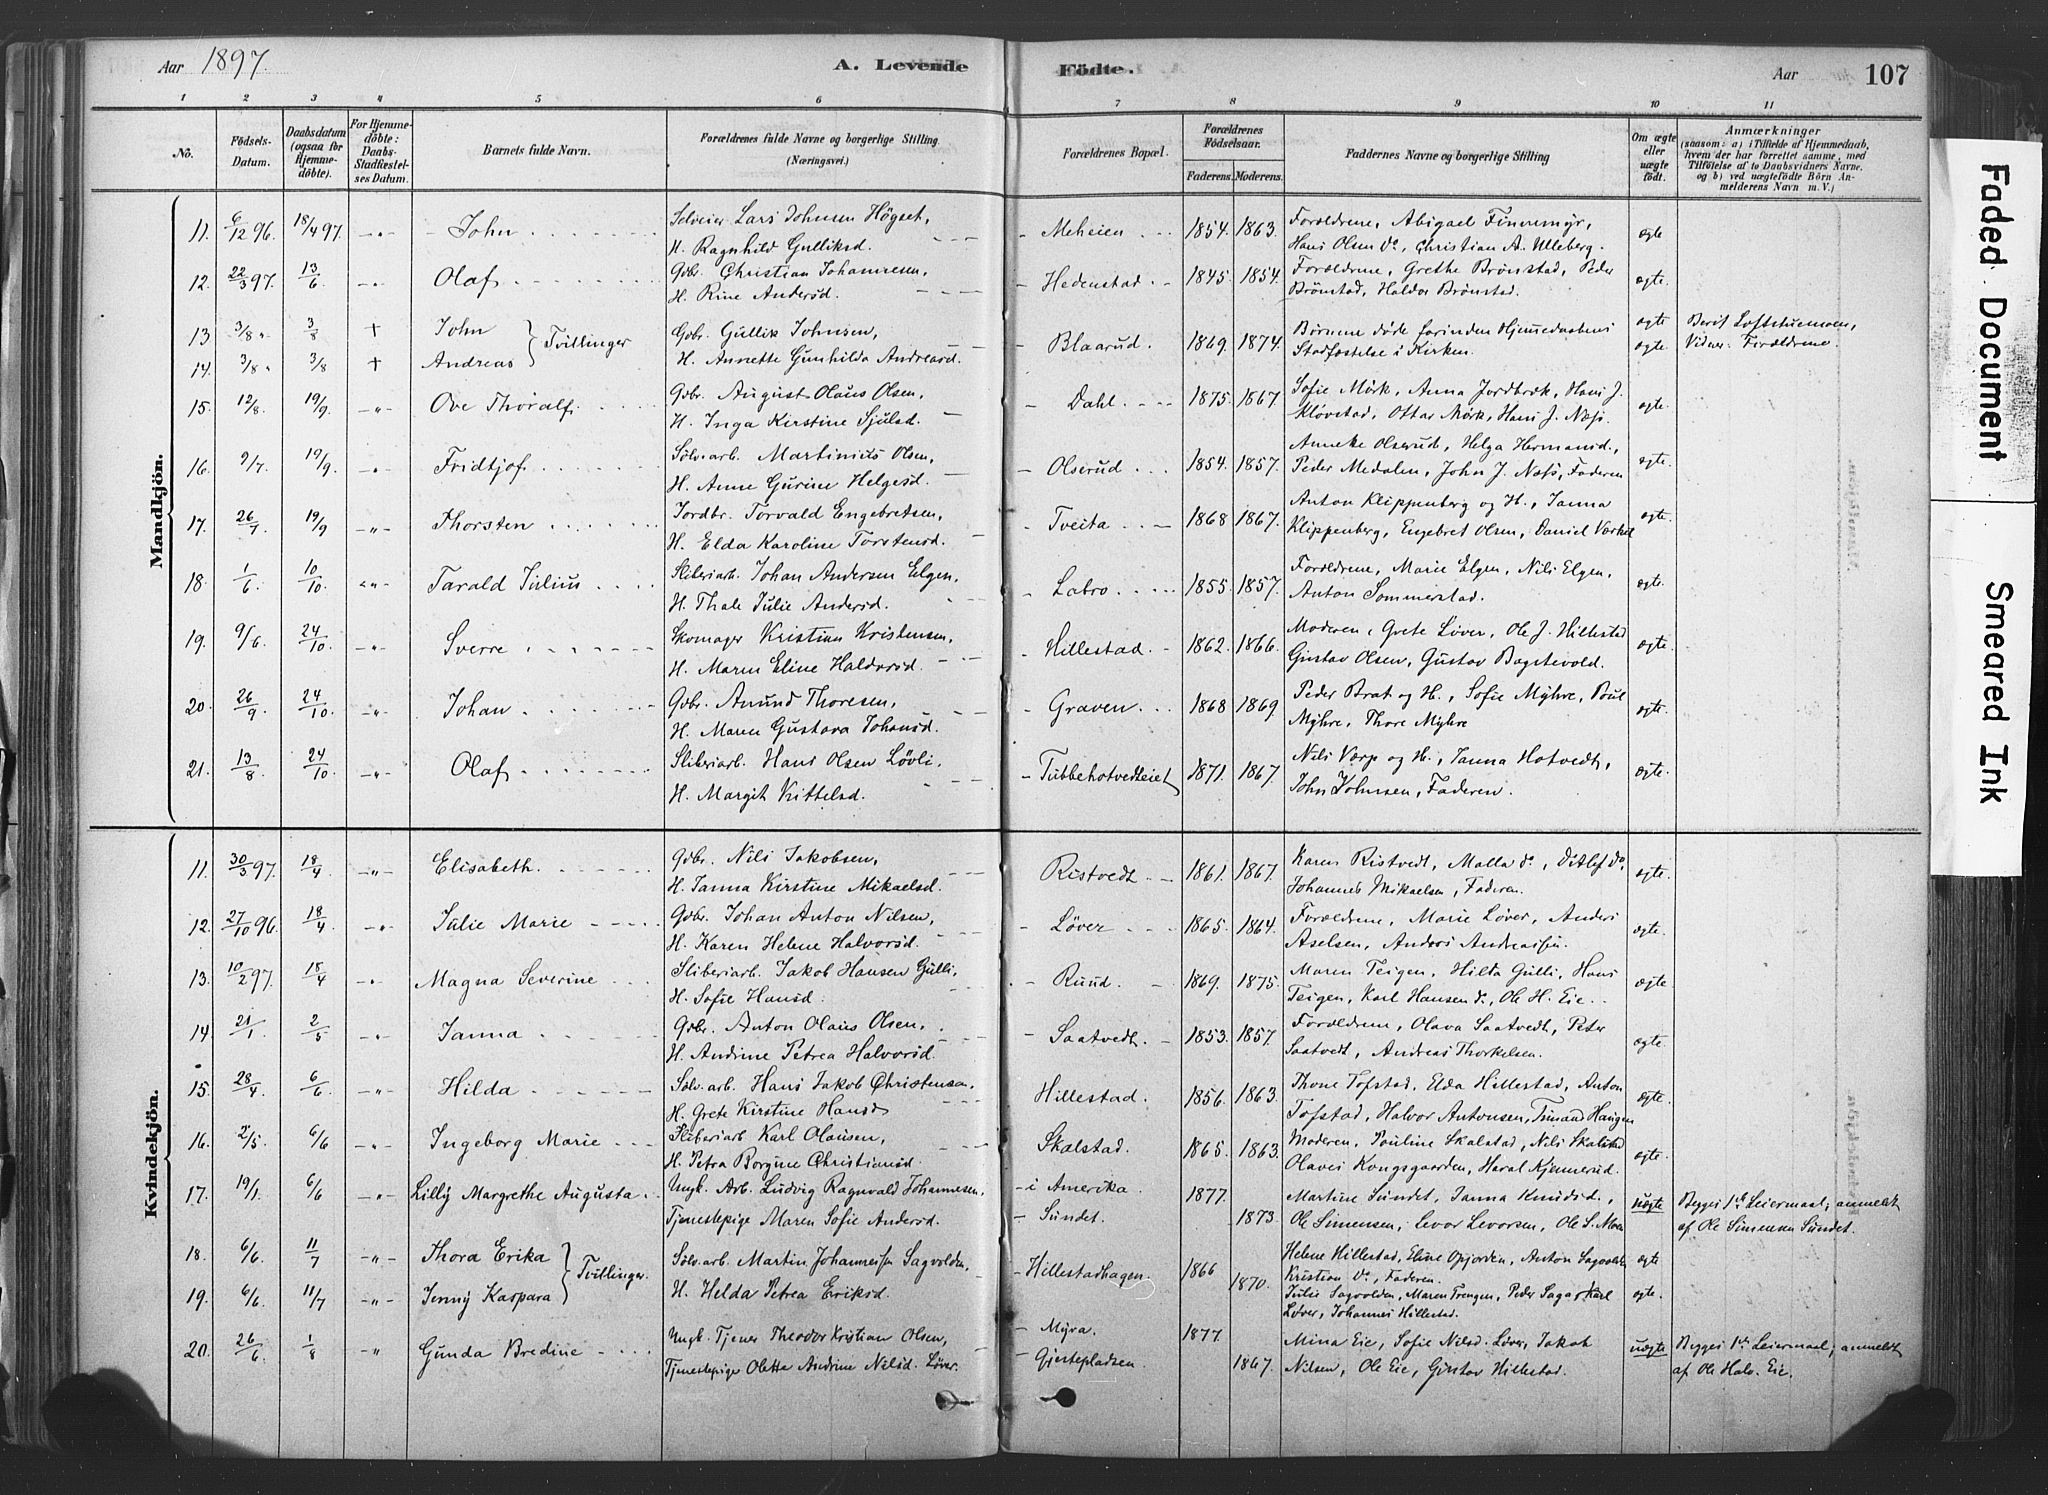 Aar 1897. A. Levende Födte. Aar 107
1 2 3 4 5 6 7 8 9 10 11
No. Födsels-Datum. Daabsdatum (ogsaa for Hjemme-döbte). For Hjemme-döbte: Daabs-Stadfæstel-ses Datum. Barnets fulde Navn. Forældrenes fulde Navne og borgerlige Stilling (Næringsvei.) Forældrenes Bopæl. Forældrenes Födselsaar. Faderens. Moderens. Faddernes Navne og borgerlige Stilling Om ægte eller uægte födt. Anmærkninger (saasom: a) i Tilfælde af Hjemmedaab, hvem der har forrettet samme, med Tilföielse af to Daabsvidners Navne, og b) ved uægtefödte Börn An-melderens Navn m. V.)
Mandkjön.
11. 6/12 96. 18/4 97. -„- John Selveier Lars Johnsen Högset, - Meheien 1854. 1863. Forældrene, Abigael Finnemyr, ægte
H. Ragnhild Gulliksd. Hans Olsen do, Christian A. Ulleberg.
12. 22/3 97. 13/6 -„- Olaf Gdbr. Christian Johannesen, - Hedenstad. 1845. 1854. Forældrene, Grethe Brønstad, Peder ægte.
H. Rine Andersd. Brønstad, Haldor Brønstad.
13 3/8 „ 3/8 + John } Tvillinger Gdbr. Gullik Johnsen, - Blaarud. 1869. 1874. Børnene døde forinden Hjemmedaabens ægte Berit Loftstuemoen,
14. 3/8 „ 3/8 + Andreas H. Annette Gunhilda Andreasd. Stadfæstelse i Kirken. ægte Vidner: Forældrene
15. 12/8. 19/9. -„- Ove Thoralf. Gdbr. August Olaus Olsen, - Dahl. 1875. 1867. Sofie Mörk, Anna Jordbræk, Hans J. ægte.
H. Inga Kirstine Sjulsd. Kløvstad, Ottar Mörk, Hans J. Næss.
16. 9/7. 19/9. -„- Fridtjof. Sölvarb. Martinius Olsen, - Olserud. 1854. 1857. Anneke Olserud, Helga Hermansd. ægte.
H. Anne Gurine Helgesd. Peder Medalen, John J. Næss, Faderen
17. 26/7 19/9 -„- Thorsten Jordbr. Torvald Engebretsen, - Tveita 1868 1867. Anton Klippenberg og H., Janna ægte.
H. Elda Karoline Torstensd. Klippenberg, Engebret Olsen, Daniel Værket
18. 1/6. 10/10. -„- Tarald Julius Sliberiarb. Johan Andersen Elgen, - Labro. 1855. 1857. Forældrene, Marie Elgen, Nils Elgen, ægte.
H. Thale Julie Andersd. Anton Sommerstad.
19. 9/6. 24/10. -„- Sverre Skomager Kristian Kristensen, - Hillestad. 1862. 1866. Moderen, Grete Løver, Ole J. Hillestad ægte.
H. Maren Eline Haldorsd. Gustav Olsen, Gustav Bagstevold.
20. 26/9. 24/10. -„- Johan. Gdbr. Anund Thoresen, - Graven. 1868 1869. Peder Brat og H., Sofie Myhre, Poul ægte.
H. Maren Gustava Johansd. Myhre, Thore Myhre
21. 13/8. 24/10. -„- Olaf Sliberiarb. Hans Olsen Lövli. - Tubbehotvedteiet 1871. 1867. Nils Værp og H., Janna Hotvedt, ægte.
H. Margit Kittelsd. John Johnsen, Faderen.
Kvindekjön.
11. 30/3 97. 18/4 -„- Elisabeth. Gdbr. Nils Jakobsen, Ristvedt 1861. 1867. Karen Ristvedt, Malla do, Ditlef do, ægte.
H. Janna Kirstine Mikaelsd. Johannes Mikaelsen, Faderen.
12. 27/10 96. 18/4 -„- Julie Marie Gdbr. Johan Anton Nilsen, - Løver 1865. 1864. Forældrene, Marie Løver, Anders ægte.
H. Karen Helene Halvorsd. Aselsen, Anders Andreassen.
13. 10/2 97. 18/4 -„- Magna Severine Sliberiarb. Jakob Hansen Gulli, - Ruud. 1869. 1875. Maren Teigen, Hilta Gulli, Hans ægte
H. Sofie Hansd. Teigen, Karl Hansen do, Ole H. Eie.
14. 21/1 2/5 -„- Janna Gdbr. Anton Olaus Olsen, - Saatvedt. 1853. 1857. Forældrene, Olava Saatvedt, Peter ægte.
H. Andrine Petrea Halvorsd. Saatvedt, Andreas Thorkelsen.
15. 28/4. 6/6 -„- Hilda Sölvarb. Hans Jakob Christensen. Hillestad. 1856. 1863. Thone Tofstad, Elda Hillestad, Anton ægte.
H. Grete Kirstine Hansd Tofstad, Halvor Antonsen, Haugen
16. 2/5. 6/6 -„- Ingeborg Marie Sliberiarb Karl Olausen, Skalstad. 1865. 1863. Moderen, Pauline Skalstad, Nils Skalstad ægte.
H. Petra Borgine Christiansd. Olaves Kongsgaarden, Haral Kjennerud.
17. 19/1. 6/6 -„- Lilly Margrethe Augusta. Ungk. Arb. Ludvig Ragnvald Johannesen, - i Amerika. 1877. Martine Sundet, Janna Knudsd., uægte Begges 1ste Leiermaal; anmeldt
Tjenestepige Maren Sofie Andersd. - Sundet. 1873. Ole Simensen, Levor Levorsen, Ole S. Moen af Ole Simensen Sundet.
18. 6/6. 11/7 -„- Thora Erika } Tvillinger. Sölvarb. Martin Johannessen Sagvolden, - Hillestadhagen 1866 Helene Hillestad, Eline Opjorden, Anton Sagvolden ægte
Kristian do, Faderen.
19. 6/6. 11/7 -„- Jenny Kaspara H. Helda Petrea Eriksd. 1870. Julie Sagvolden, Maren Trengen, Peder Karl ægte.
Løver, Johannes Hillestad.
20. 26/6. 1/8 -„- Gunda Bredine Ungk. Tjener Theodor Kristian Olsen, - Myra. 1877 Mina Eie, Sofie Nilsd. Løver, Jakob uægte Begges 1ste Leiermaal; anmeldt
Tjenestepige Olette Andrine Nilsd. Løver. - Gjestepladsen 1867. Nilsen, Ole Eie, Gustav Hillestad. af Ole Halv. Eie.
Faded Document
Smeared Ink